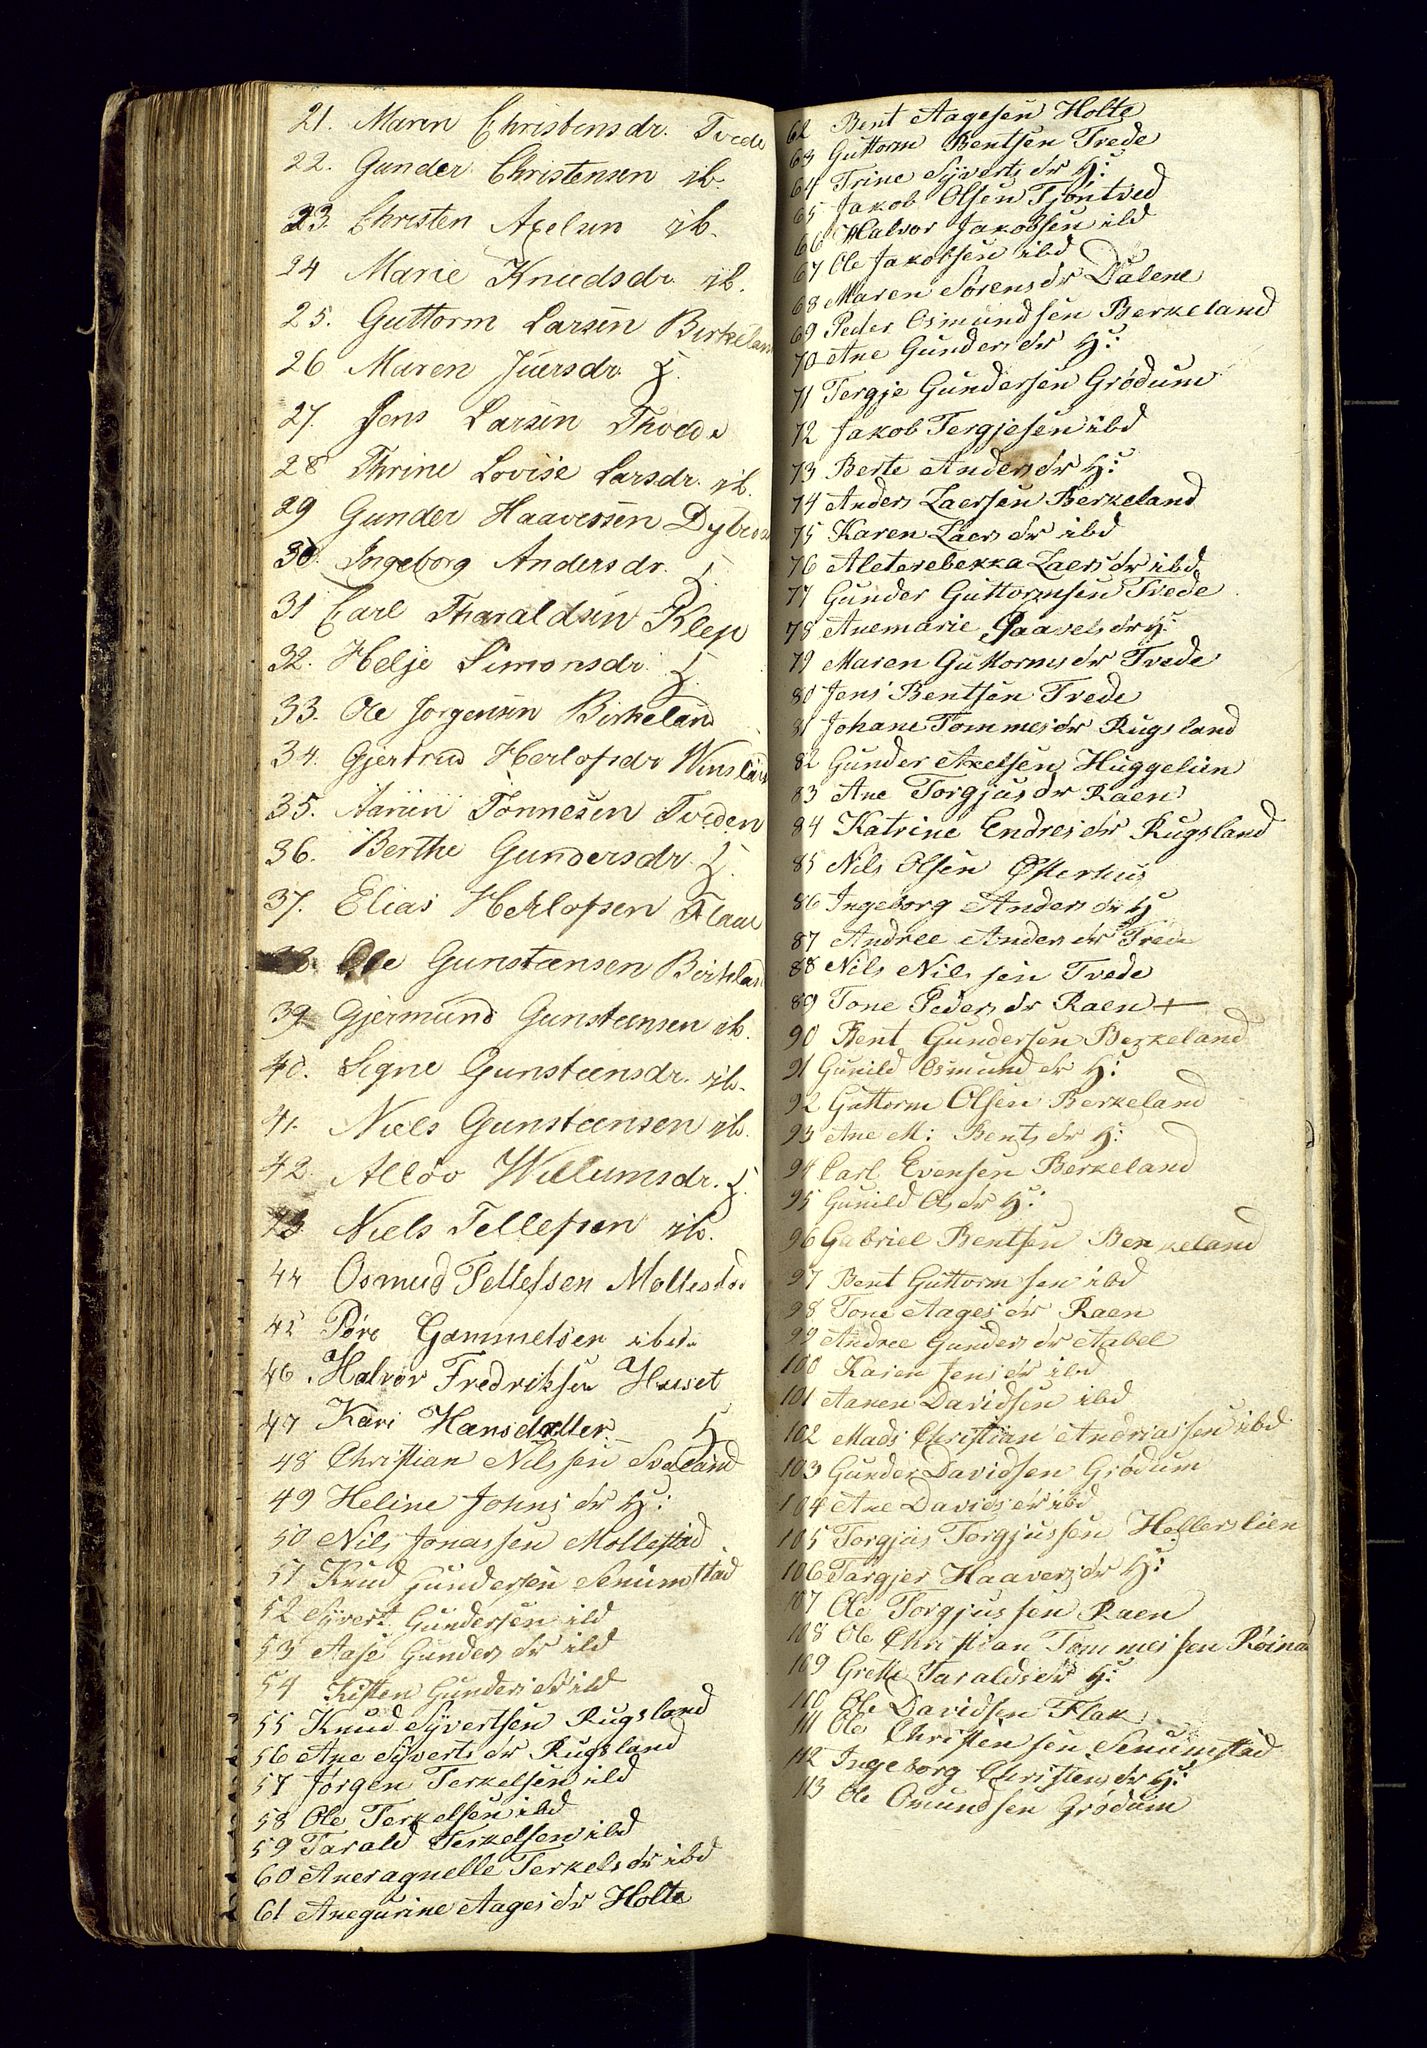 21. Maren Christensdr. Tvede
22. Gunder Christensen ib.
23. Christen Axelsen ib.
24 Marie Knudsdr. ib.
25. Guttorm Larsen Birkeland
26 Maren Juersdr. H.
27. Jens Larsen Thvede
28 Thrine Lovise Larsdr. ib.
29 Gunder Haavessen
30. Ingeborg Andersdr. H.
31 Carl Tharaldsen Klep
32. Helje Simonsdr. H.
33. Ole Jørgensen Birkeland
34. Gjertrud Herlofsdr
35. Tønnesen Tveden
36. Berthe Gundersdr. H.
37. Elias Herlofsen Flaae
38. Ole Gunstensen Birkland
39. Gjermund Gunstensen ib.
40. Signe Gunsteensdr. ib.
41. Niels Gunsteensen ib.
42. Willumsdr. H.
43 Niels Tellefsen ib.
44 Osmud Tellefsen Mollestad
45 Gammelsen ibd.
46. Halvor Fredriksen Huset
47 Kari Hansdatter H
48 Christian Nilssen Svaland
49 Heline Johnsdr H:
50 Nils Jonassen Mollestad
51 Knud Gundersen Senumstad
52 Syvert Gundersen ibd
53 Aase Gundersdr ibd
54 Kisten Gundersdr ibd
55 Knud Syvertsen Rugsland
56 Ane Syvertsdr Rugsland
57 Jørgen Terkelsen ibd
58 Ole Terkelsen ibd
59 Tarald Terkelsen ibd
60 Aneragnelle Terkelsdr ibd
61 Anegurine Aagesdr Holte
62 Bent Aagesen Holte
63 Guttorm Bentsen Tvede
64 Trine Syvertsdr H:
65 Jakob Olsen Tjøntved
66 Halvor Jakobsen ibd
67 Ole Jakobsen ibd
68 Maren Sørensdr Dalene
69 Peder Osmundsen Berkeland
70 Ane Gundersdr H:
71 Tergje Gundersen Grødum
72 Jakob Tergjesen ibd
73 Berte Andersdr H:
74 Anders Laersen Berkeland
75 Karen Laersdr ibd
76 Aleterebekka Laersdr ibd
77 Gunder Guttormsen Tvede
78 Anemarie Paavelsdr H:
79 Maren Guttormsdr Tvede
80 Jens Bentsen Tvede
81 Johane Tommesdr Rugsland
82 Gunder Axelsen Huggelien
83 Ane Torgjusdr Raen
84 Katrine Endresdr Rugsland
85 Nils Olsen Østerhus
86 Ingeborg Andersdr H
87 Andree Andersdr Tvede
88 Nils Nilssen Tvede
89 Tone Pedersdr Raen +
90 Bent Gundersen Berkeland
91 Gunild Osmundsdr H:
92 Guttorm Olsen Berkeland
93 Ane M: Bentsdr H:
94 Carl Evensen Berkeland
95 Gunild Olsdr H:
96 Gabriel Bentsen Berkeland
97 Bent Guttormsen ibd
98 Tone Aagesdr Raen
99 Andree Gundersdr Aabel
100 Karen Jensdr ibd
101 Aanen Davidsen ibd
102 Mads Christian Andriassen ibd
103 Gunder Davidsen Grødum
104 Ane Davidsdr ibd
105 Torgjus Torgjussen Hellerslien
106 Targjer Haaversdr H:
107 Ole Torgjussen Raen
108 Ole Christian Tommessen
109 Grethe Taraldsdr H:
110 Ole Davidsen Flak
111 Ole Christensen Senumstad
112 Ingeborg Christensdr H:
113 Ole Omundsen Grødum